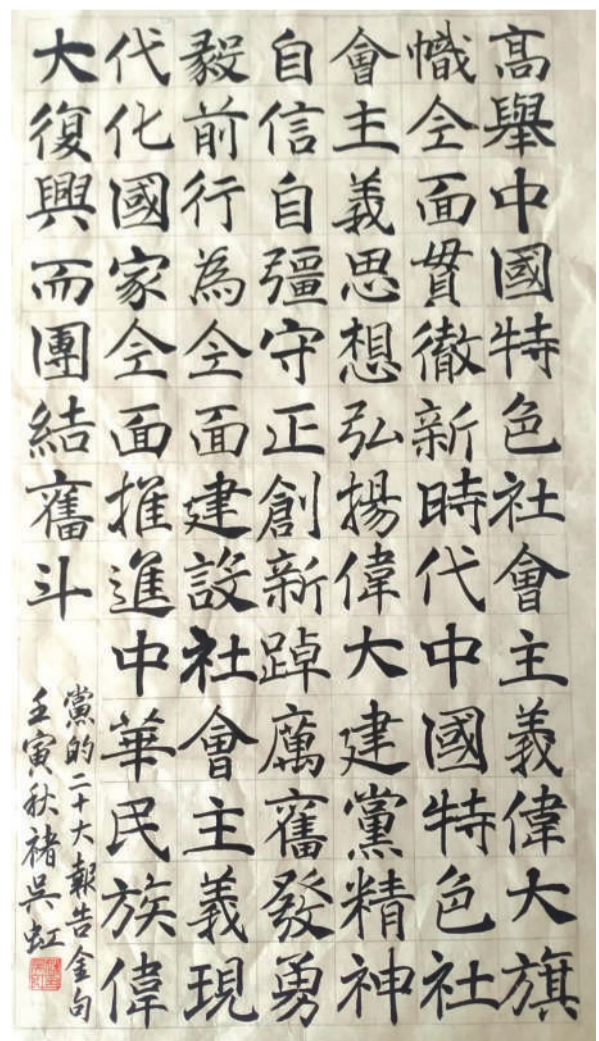 高舉中國特色社會主義偉大旗
幟全面貫徹新時代中國特色社
會主義思想弘揚偉大建黨精神
自信自彊守正創新踔厲奮發勇
毅前行為全面建設社會主義現
代化國家全面推進中華民族偉
大復興而團結奮斗
黨的二十大報告金句
壬寅秋褚吳虹